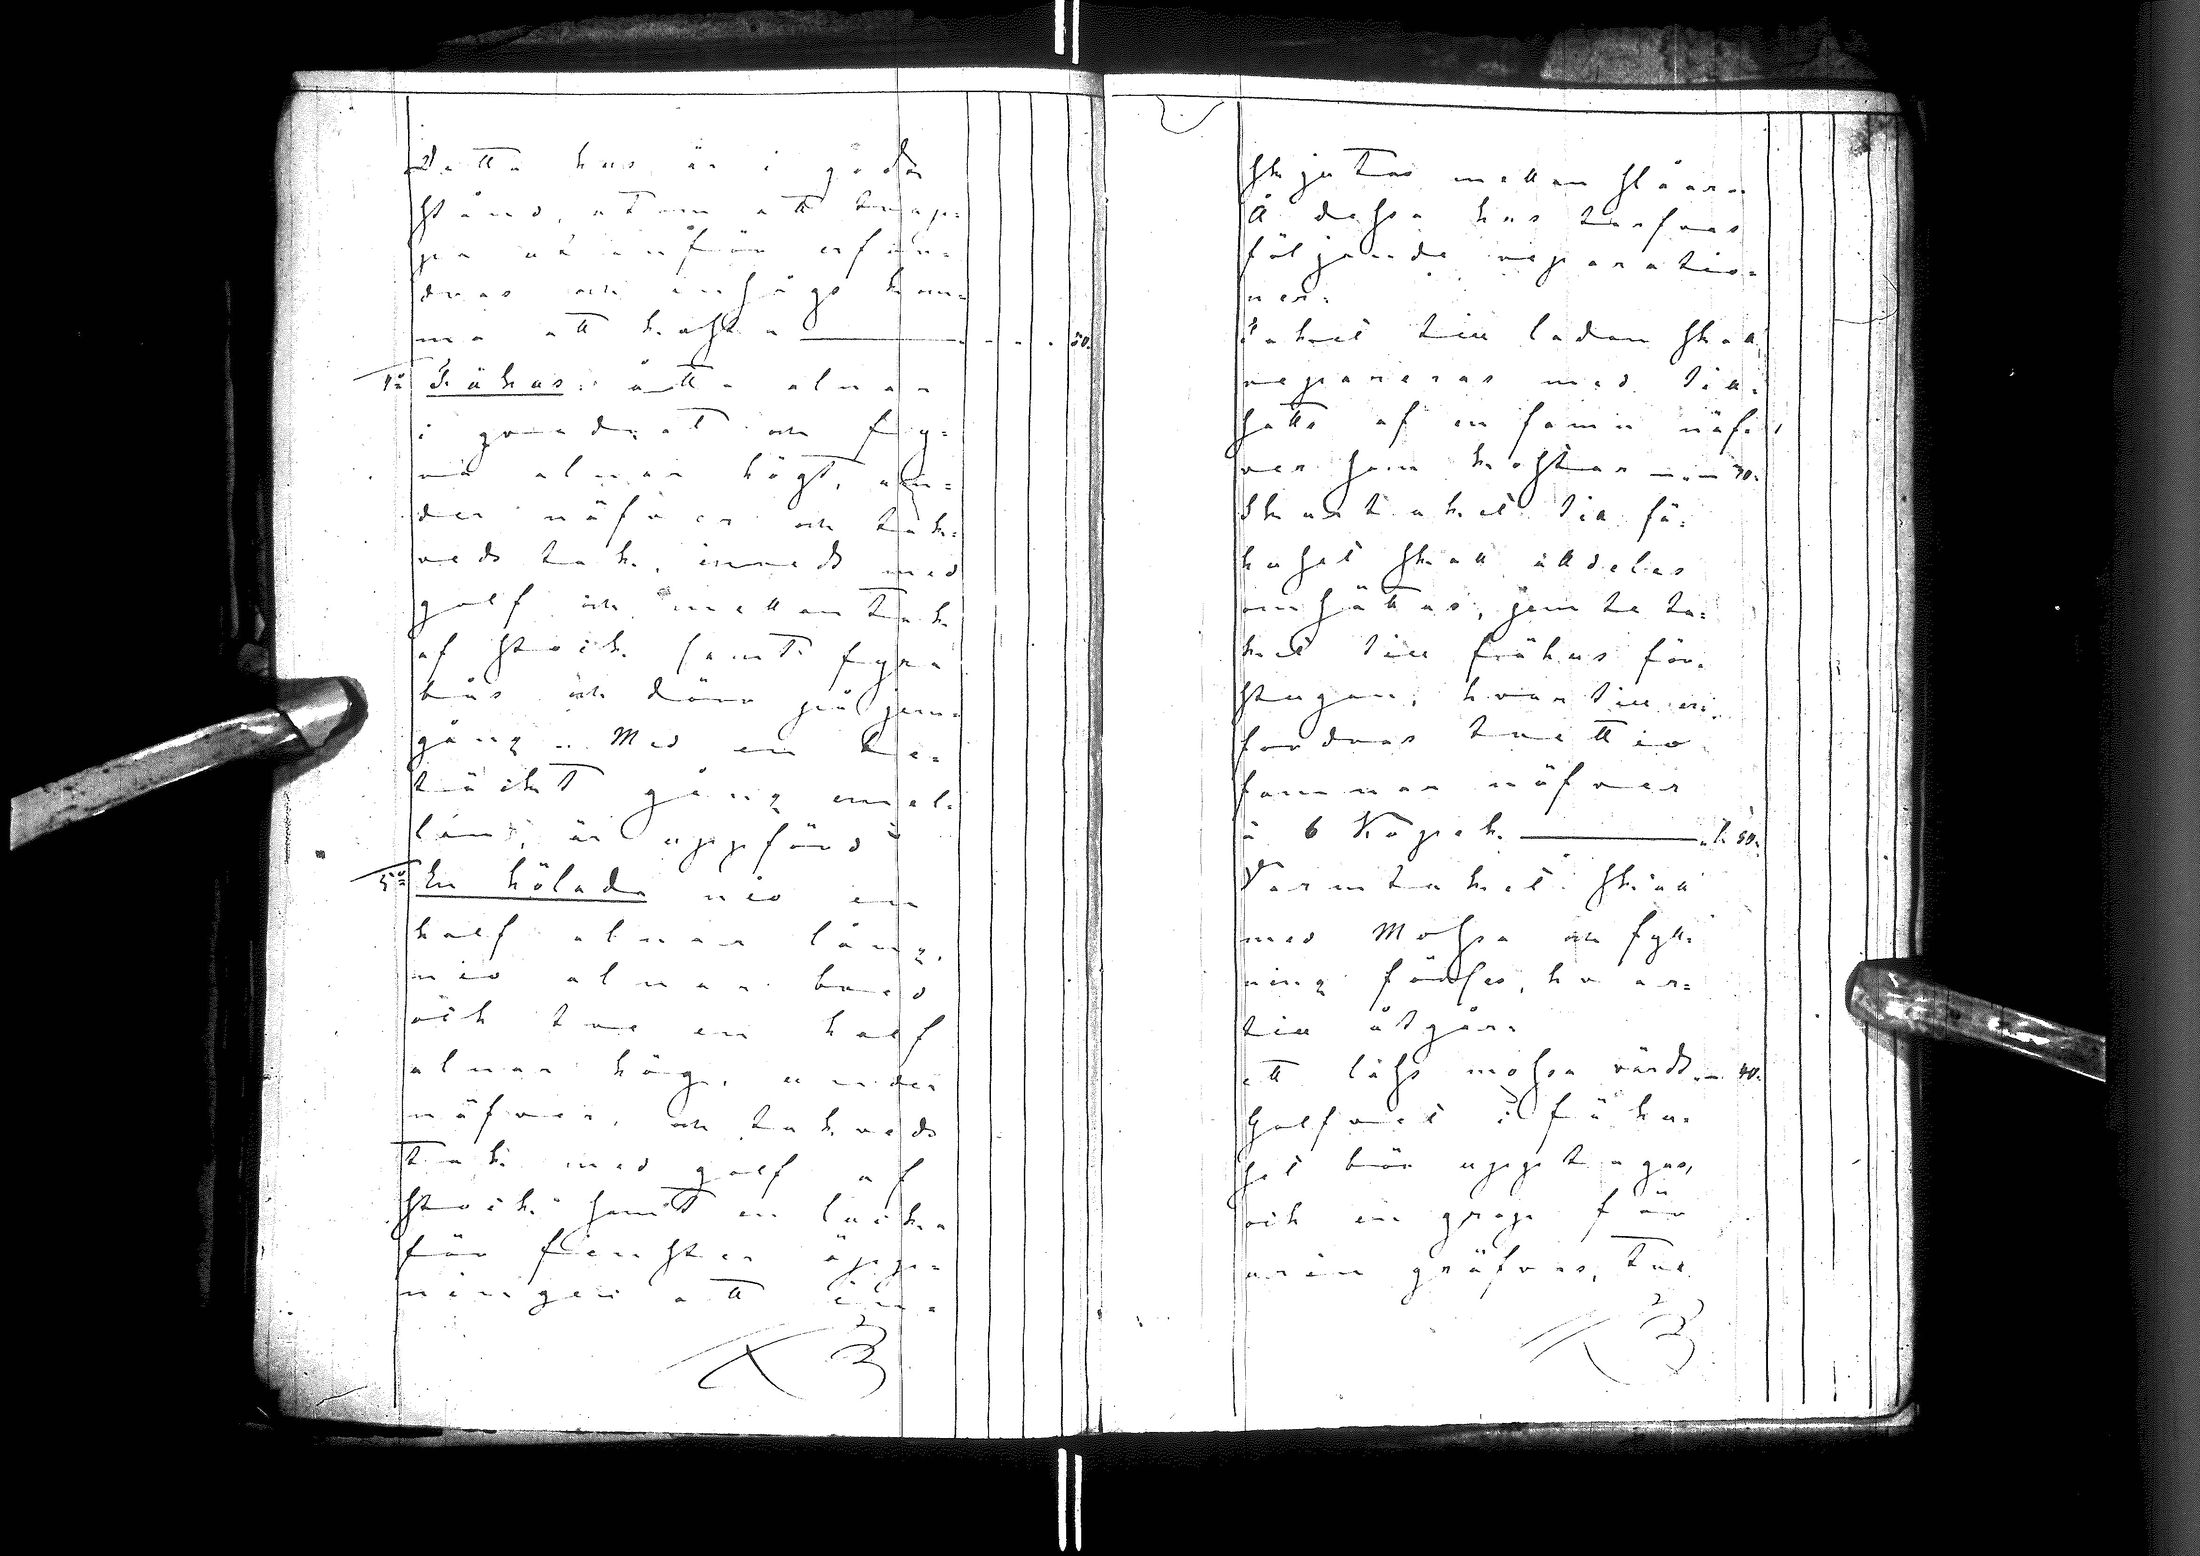 Detta hus är i godt
stånd, utom att trap-
pa utanför erfor-
dras och ansågs kom-
ma att kosta ——— 50.
4:o Fähus: åtta alnar
i qvadrat och fy-
ra alnar högt, un-
der näfver och tak-
veds tak, inredt med
golf och mellantak
af stock samt fyra
bås och dörr på jern-
gång. Med en be-
täckt gång emel-
lan, är uppförd
5:o En hölada nio en
half alnar lång,
nio alnar bred
och tre en half
alnar hög, under
näfver, och takveds
tak med golf af
stock samt en lucka
för fenster öpp-
ningen att in-
skjutas mellan slåar.
Å dessa hus tarfvas
följande reparatio-
ner:
Taket till ladan skall
repareras med till-
satts af en famn näf-
ver som kostar — „ — 70.
Skurtaket till fä-
huset skall alldeles
omsättas, jemte ta-
ket till fähus för-
stugan, hvartill er-
fordras trettio
famnar näfver
à 6 Kopek. ——— „ 1. 80.
Varmtaket skall
med Mossa och fyll-
ning förses, hvar-
till åtgår.
ett lass mossa värdt „ — 40.
Golfvet i fähu-
set bör upptagas,
och en grop för
urin gräfvas, tre